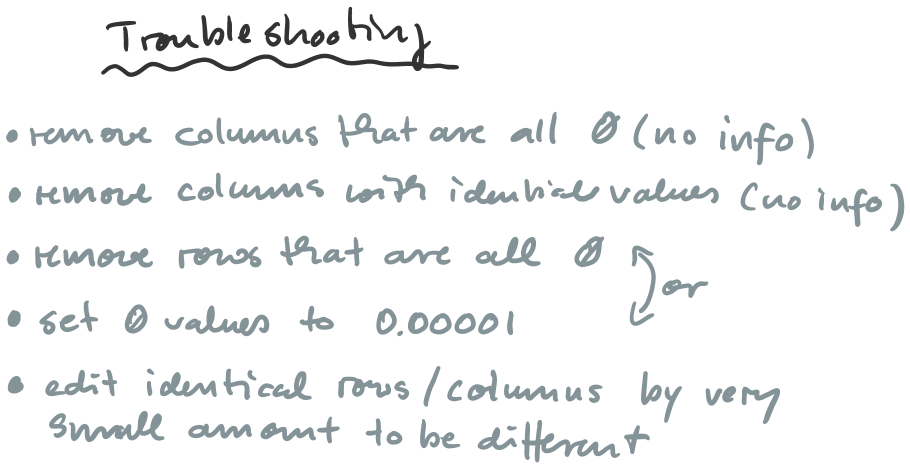 Troubleshooting
• remove columns that are all Ø (no info)
• remove columns with identical values (no info)
• remove rows that are all Ø
or
• set Ø values to 0.00001
• edit identical rows/columns by very
small amount to be different